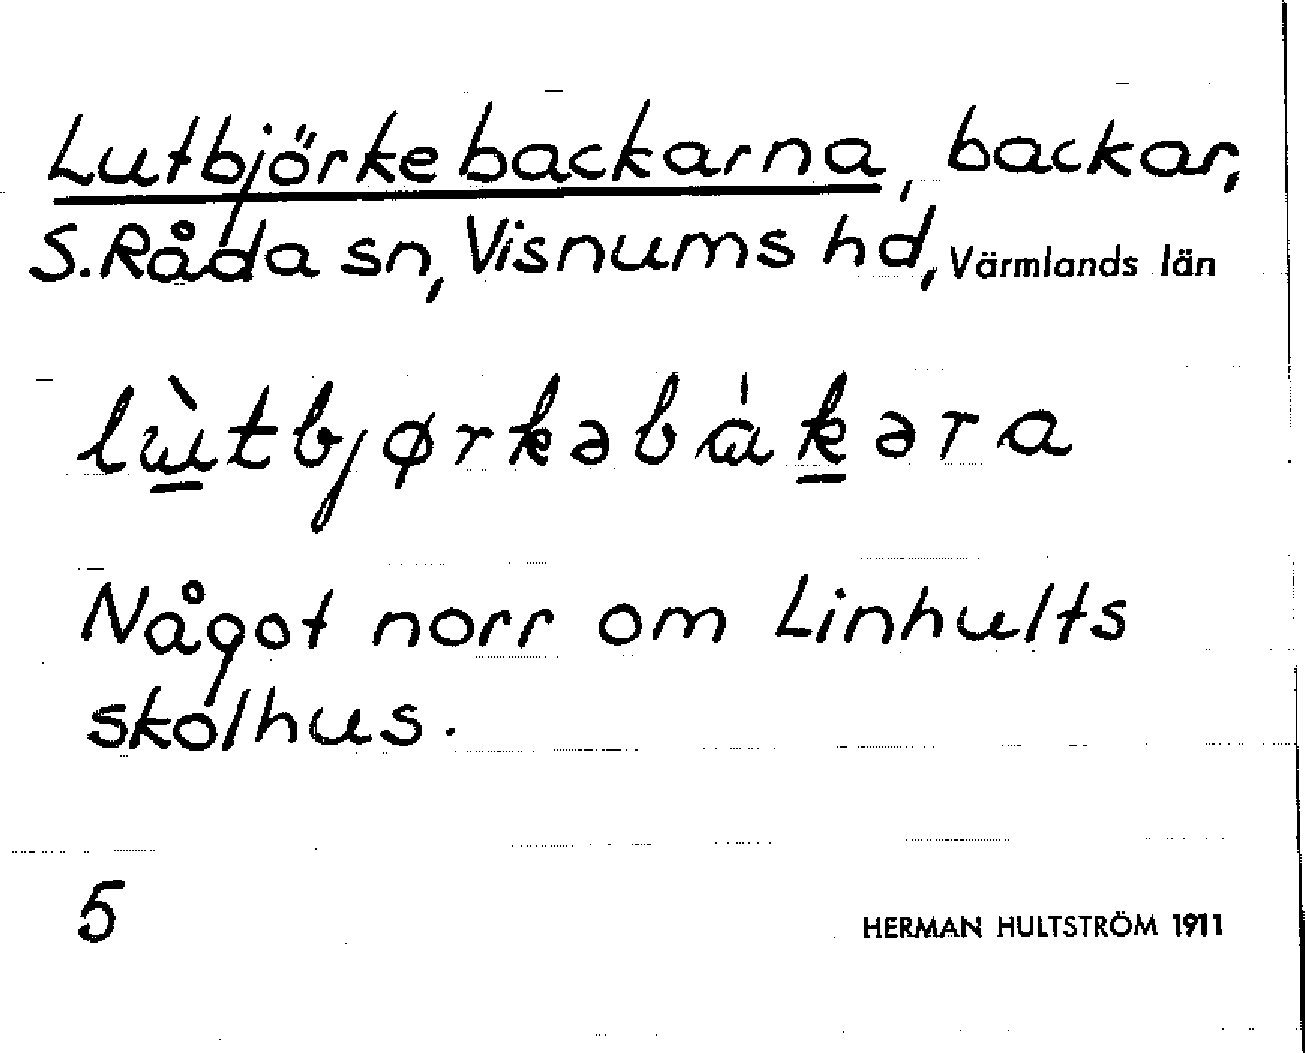 Lutbjörkebackarna, backar,
S. Råda sn, Visnums hd, Värmlands län
lù̱tbjørkəbàḵəra
Något norr om Linhults
skolhus.
5
HERMAN HULTSTRÖM 1911